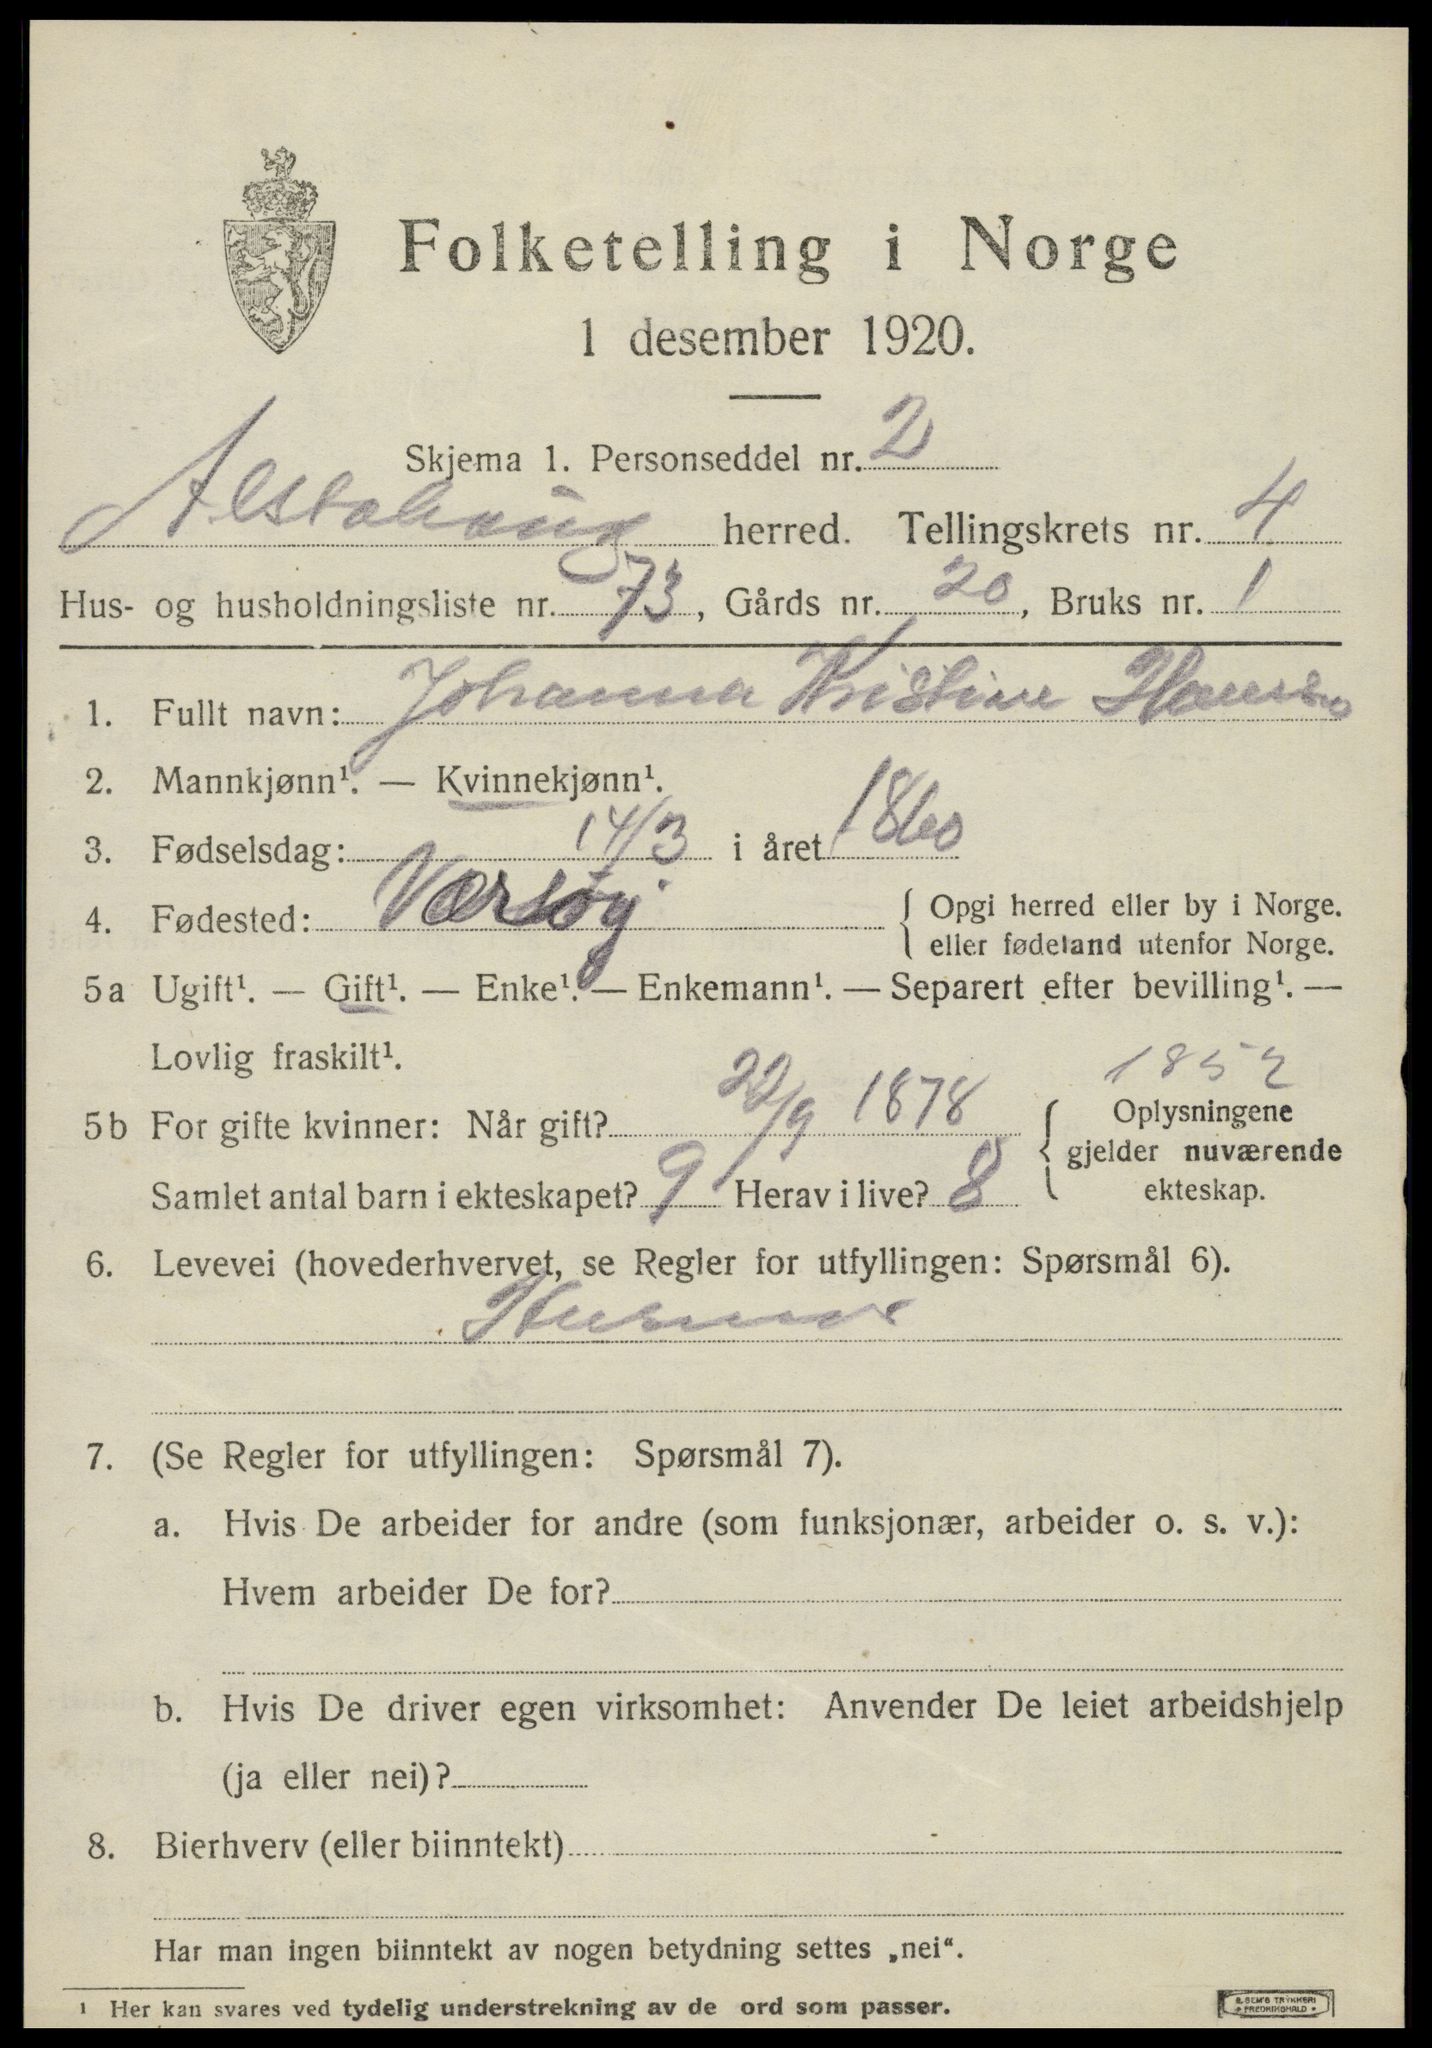 Folketelling i Norge
1 desember 1920.
Skjema 1. Personseddel nr. 2
Alstahaug herred. Tellingskrets nr. 4
Hus- og husholdningsliste nr. 73, Gårds nr. 20, Bruks nr. 1
1. Fullt navn: Johanna Kristine Hansen
2. Mannkjønn¹. — Kvinnekjønn¹.
3. Fødselsdag: 14/3 i året 1860
4. Fødested: Værsøy { Opgi herred eller by i Norge.
eller fødeland utenfor Norge.
5a Ugift¹. — Gift¹. — Enke¹. — Enkemann¹. — Separert efter bevilling¹. —
Lovlig fraskilt¹.
1852
5b For gifte kvinner: Når gift? 22/9 1878 { Oplysningene
gjelder nuværende
Samlet antal barn i ekteskapet? 9 Herav i live? 8 ekteskap.
6. Levevei (hovederhvervet, se Regler for utfyllingen: Spørsmål 6).
Husmor
7. (Se Regler for utfyllingen: Spørsmål 7).
a. Hvis De arbeider for andre (som funksjonær, arbeider o. s. v.):
Hvem arbeider De for?
b. Hvis De driver egen virksomhet: Anvender De leiet arbeidshjelp
(ja eller nei)?
8. Bierhverv (eller biinntekt)
Har man ingen biinntekt av nogen betydning settes „nei“.
¹ Her kan svares ved tydelig understrekning av de ord som passer.
E. SEM'S TRYKKERI
FREDRIKSHALD